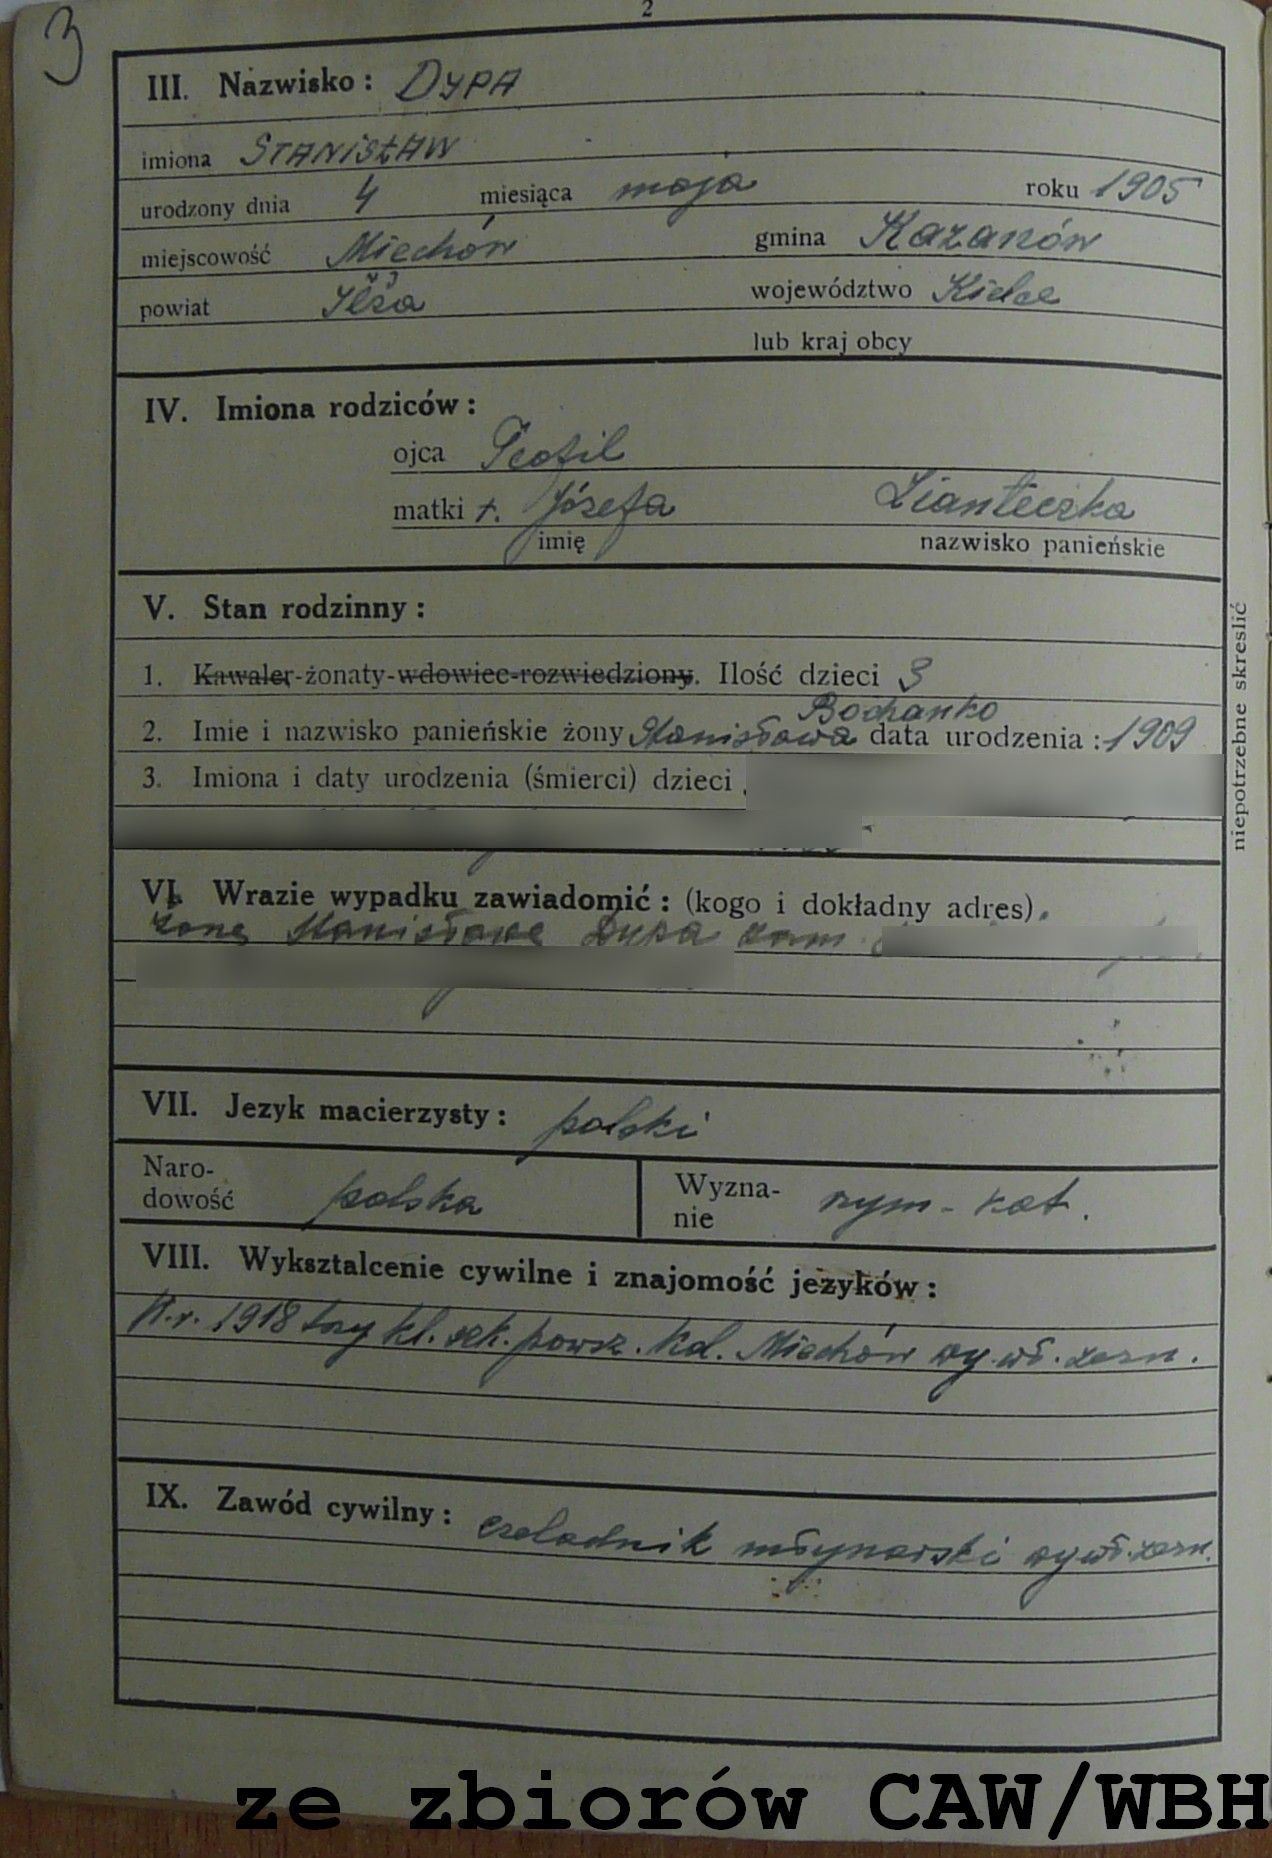 2
3
III. Nazwisko: DYPA
imiona STANISŁAW
urodzony dnia 4 miesiąca maja roku 1905
miejscowość Miechów gmina Kazanów
powiat Iłża województwo Kielce
lub kraj obcy
IV. Imiona rodziców:
ojca Teofil
matki r. Józefa Lianteczka
imię nazwisko panieńskie
V. Stan rodzinny:
1. Kawaler-żonaty-wdowiec-rozwiedziony. Ilość dzieci 3
Bochanko
2. Imie i nazwisko panieńskie żony Stanisława data urodzenia: 1909
3. Imiona i daty urodzenia (śmierci) dzieci
niepotrzebne skreslić
VI. Wrazie wypadku zawiadomić: (kogo i dokładny adres).
żonę Stanisławę Dypa zam.
VII. Jezyk macierzysty: polski
Naro-
dowość polska
Wyzna-
nie rzym-kat.
VIII. Wyksztalcenie cywilne i znajomość jezyków:
W.r. 1918 trzy kl. szk. powsz. Kol. Miechów wg. wł. zezn.
IX. Zawód cywilny: czeladnik młynarski wg wł. zezn.
ze zbiorów CAW/WBH